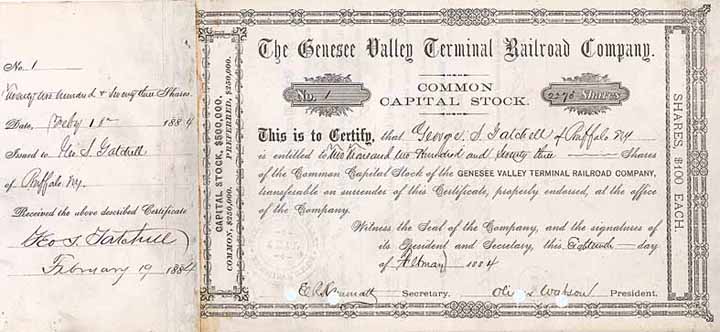 No. 1
Twenty two hundred & seventy three Shares.
Date, Feby 1st 1884
Issued to Geo S. Gatchell
of Buffalo N.Y.
Received the above described Certificate
Geo S. Gatchell
February 19 1884
CAPITAL STOCK, $500,000.
COMMON, $250,000. PREFERRED, $250,000.
The Genesee Valley Terminal Railroad Company.
No. 1
COMMON
CAPITAL STOCK.
2273 Shares
This is to Certify, that George S. Gatchell of Buffalo N.Y.
is entitled to Two thousand two Hundred and Seventy three Shares
of the Common Capital Stock of the GENESEE VALLEY TERMINAL RAILROAD COMPANY,
transferable on surrender of this Certificate, properly endorsed, at the office
of the Company.
Witness the Seal of the Company, and the signatures of
its President and Secretary, this day
of 1884
Secretary. Watson President.
SHARES, $100 EACH.